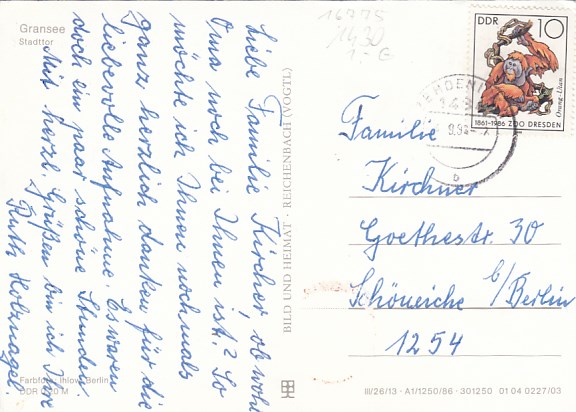 Gransee
Stadttor
Liebe Familie Kircher, ob wohl
Oma noch bei Ihnen ist? So
möchte ich Ihnen nochmals
ganz herzlich danken für die
liebevolle Aufnahme. Es waren
doch ein paar schöne Stunden.
Mit herzl. Grüßen bin ich Ihre
Ruth Holznagel.
Farbfoto: Ihlow, Berlin
DDR 0,20 M
BILD UND HEIMAT · REICHENBACH (VOGTL)
16775
1430
1-G
DDR 10
Orang-Utan
1861-1986 ZOO DRESDEN
143
b
Familie
Kirchner
Goethestr. 30
Schöneiche b/Berlin
1254
III/26/13 · A1/1250/86 · 301250 01 04 0227/03